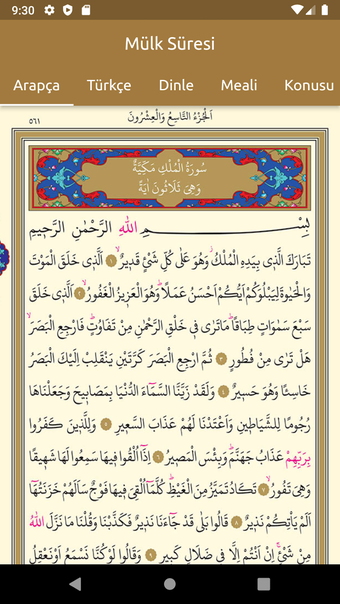 9:30
Mülk Sûresi
Arapça Türkçe Dinle Meali Konusu
اَلْجُزْءُ التَّاسِعُ وَالْعِشْرُونَ
٥٦١
سُورَةُ الْمُلْكِ مَكِّيَّةٌ
وَهِيَ ثَلَاثُونَ اٰيَةً
بِسْــــــمِ اللّٰهِ الرَّحْمٰنِ الرَّحٖيمِ
تَبَارَكَ الَّذٖى بِيَدِهِ الْمُلْكُؗ وَهُوَ عَلٰى كُلِّ شَىْءٍ قَدٖيرٌۙ ١ اَلَّذٖى خَلَقَ الْمَوْتَ
وَالْحَيٰوةَ لِيَبْلُوَكُمْ اَيُّكُمْ اَحْسَنُ عَمَلًاؕ وَهُوَ الْعَزٖيزُ الْغَفُورُۙ ٢ اَلَّذٖى خَلَقَ
سَبْعَ سَمٰوَاتٍ طِبَاقًاؕ مَا تَرٰى فٖى خَلْقِ الرَّحْمٰنِ مِنْ تَفَاوُتٍؕ فَارْجِعِ الْبَصَرَۙ
هَلْ تَرٰى مِنْ فُطُورٍ ٣ ثُمَّ ارْجِعِ الْبَصَرَ كَرَّتَيْنِ يَنْقَلِبْ اِلَيْكَ الْبَصَرُ
خَاسِئًا وَهُوَ حَسٖيرٌ ٤ وَلَقَدْ زَيَّنَّا السَّمَٓاءَ الدُّنْيَا بِمَصَابٖيحَ وَجَعَلْنَاهَا
رُجُومًا لِلشَّيَاطٖينِ وَاَعْتَدْنَا لَهُمْ عَذَابَ السَّعٖيرِ ٥ وَلِلَّذٖينَ كَفَرُوا
بِرَبِّهِمْ عَذَابُ جَهَنَّمَؕ وَبِئْسَ الْمَصٖيرُ ٦ اِذَٓا اُلْقُوا فٖيهَا سَمِعُوا لَهَا شَهٖيقًا
وَهِىَ تَفُورُۙ ٧ تَكَادُ تَمَيَّزُ مِنَ الْغَيْظِؕ كُلَّمَٓا اُلْقِىَ فٖيهَا فَوْجٌ سَاَلَهُمْ خَزَنَتُهَٓا
اَلَمْ يَاْتِكُمْ نَذٖيرٌ ٨ قَالُوا بَلٰى قَدْ جَٓاءَنَا نَذٖيرٌ فَكَذَّبْنَا وَقُلْنَا مَا نَزَّلَ اللّٰهُ
مِنْ شَىْءٍۚ اِنْ اَنْتُمْ اِلَّا فٖى ضَلَالٍ كَبٖيرٍ ٩ وَقَالُوا لَوْ كُنَّا نَسْمَعُ اَوْ نَعْقِلُ